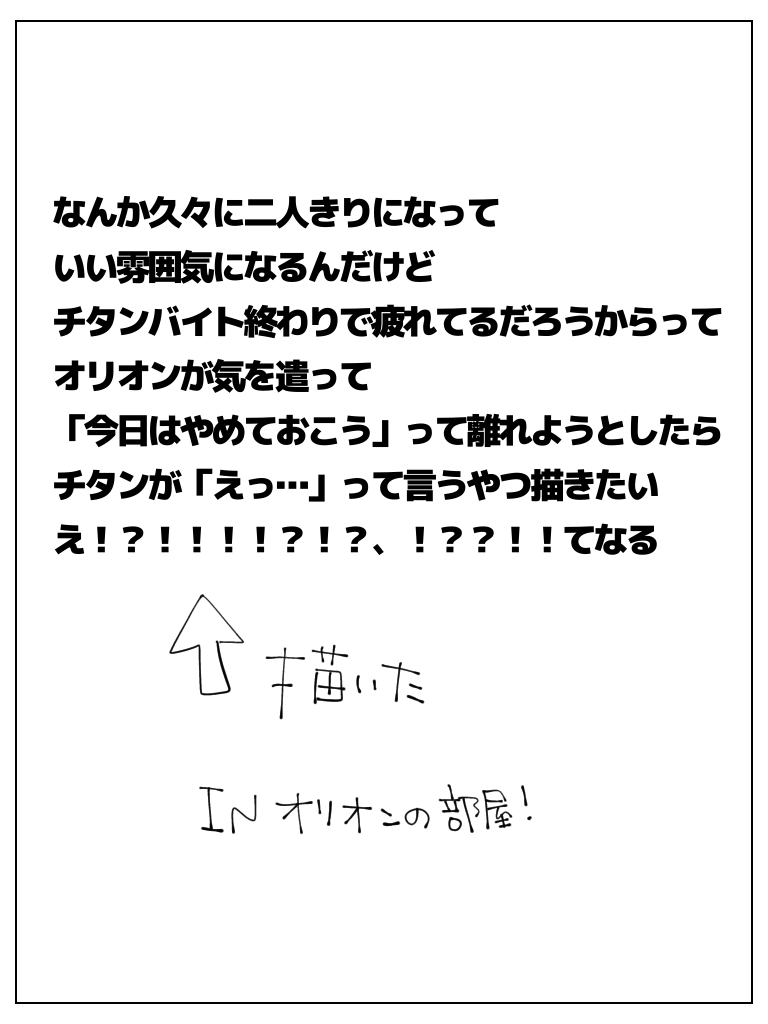 なんか久々に二人きりになって
いい雰囲気になるんだけど
チタンバイト終わりで疲れてるだろうからって
オリオンが気を遣って
「今日はやめておこう」って離れようとしたら
チタンが「えっ…」って言うやつ描きたい
え！？！！！！？！？、！？？！！てなる
描いた
IN オリオンの部屋！